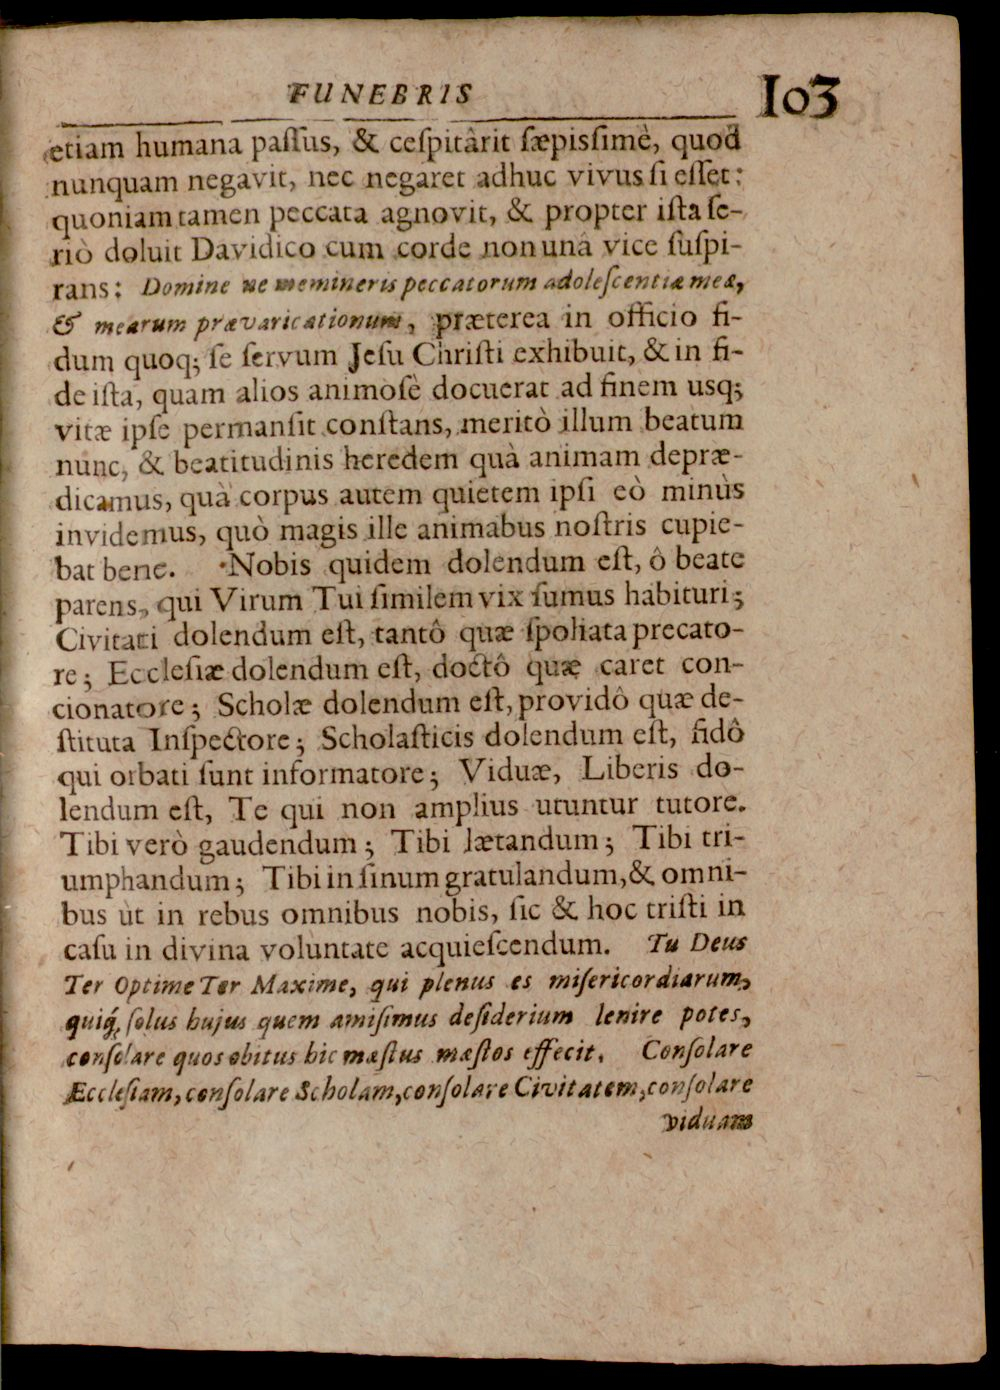 FUNEBRIS 103
etiam humana paſſus, & ceſpitârit ſæpisſimè, quod
nunquam negavit, nec negaret adhuc vivus ſi eſſet:
quoniam tamen peccata agnovit, & propter iſta ſe-
riò doluit Davidico cum corde non unâ vice ſuſpi-
rans: Domine ne memineris peccatorum adoleſcentiæ meæ,
& mearum prævaricationum, præterea in officio fi-
dum quoq; ſe ſervum Jeſu Chriſti exhibuit, & in fi-
de iſta, quam alios animosè docuerat ad finem usq;
vitæ ipſe permanſit conſtans, meritò illum beatum
nunc, & beatitudinis heredem quà animam depræ-
dicamus, quà corpus autem quietem ipſi eò minùs
invidemus, quò magis ille animabus noſtris cupie-
bat bene. Nobis quidem dolendum eſt, ô beate
parens, qui Virum Tui ſimilem vix ſumus habituri;
Civitati dolendum eſt, tantô quæ ſpoliata precato-
re; Eccleſiæ dolendum eſt, doctô quæ caret con-
cionatore; Scholæ dolendum eſt, providô quæ de-
ſtituta Inſpectore; Scholaſticis dolendum eſt, fidô
qui orbati ſunt informatore; Viduæ, Liberis do-
lendum eſt, Te qui non amplius utuntur tutore.
Tibi verò gaudendum; Tibi lætandum; Tibi tri-
umphandum; Tibi in ſinum gratulandum, & omni-
bus ut in rebus omnibus nobis, ſic & hoc triſti in
caſu in divina voluntate acquieſcendum. Tu Deus
Ter Optime Ter Maxime, qui plenus es miſericordiarum,
quiq́; ſolus hujus quem amiſimus deſiderium lenire potes,
conſolare quos obitus hic mæſtus mæſtos effecit. Conſolare
Eccleſiam, conſolare Scholam, conſolare Civitatem, conſolare
viduam